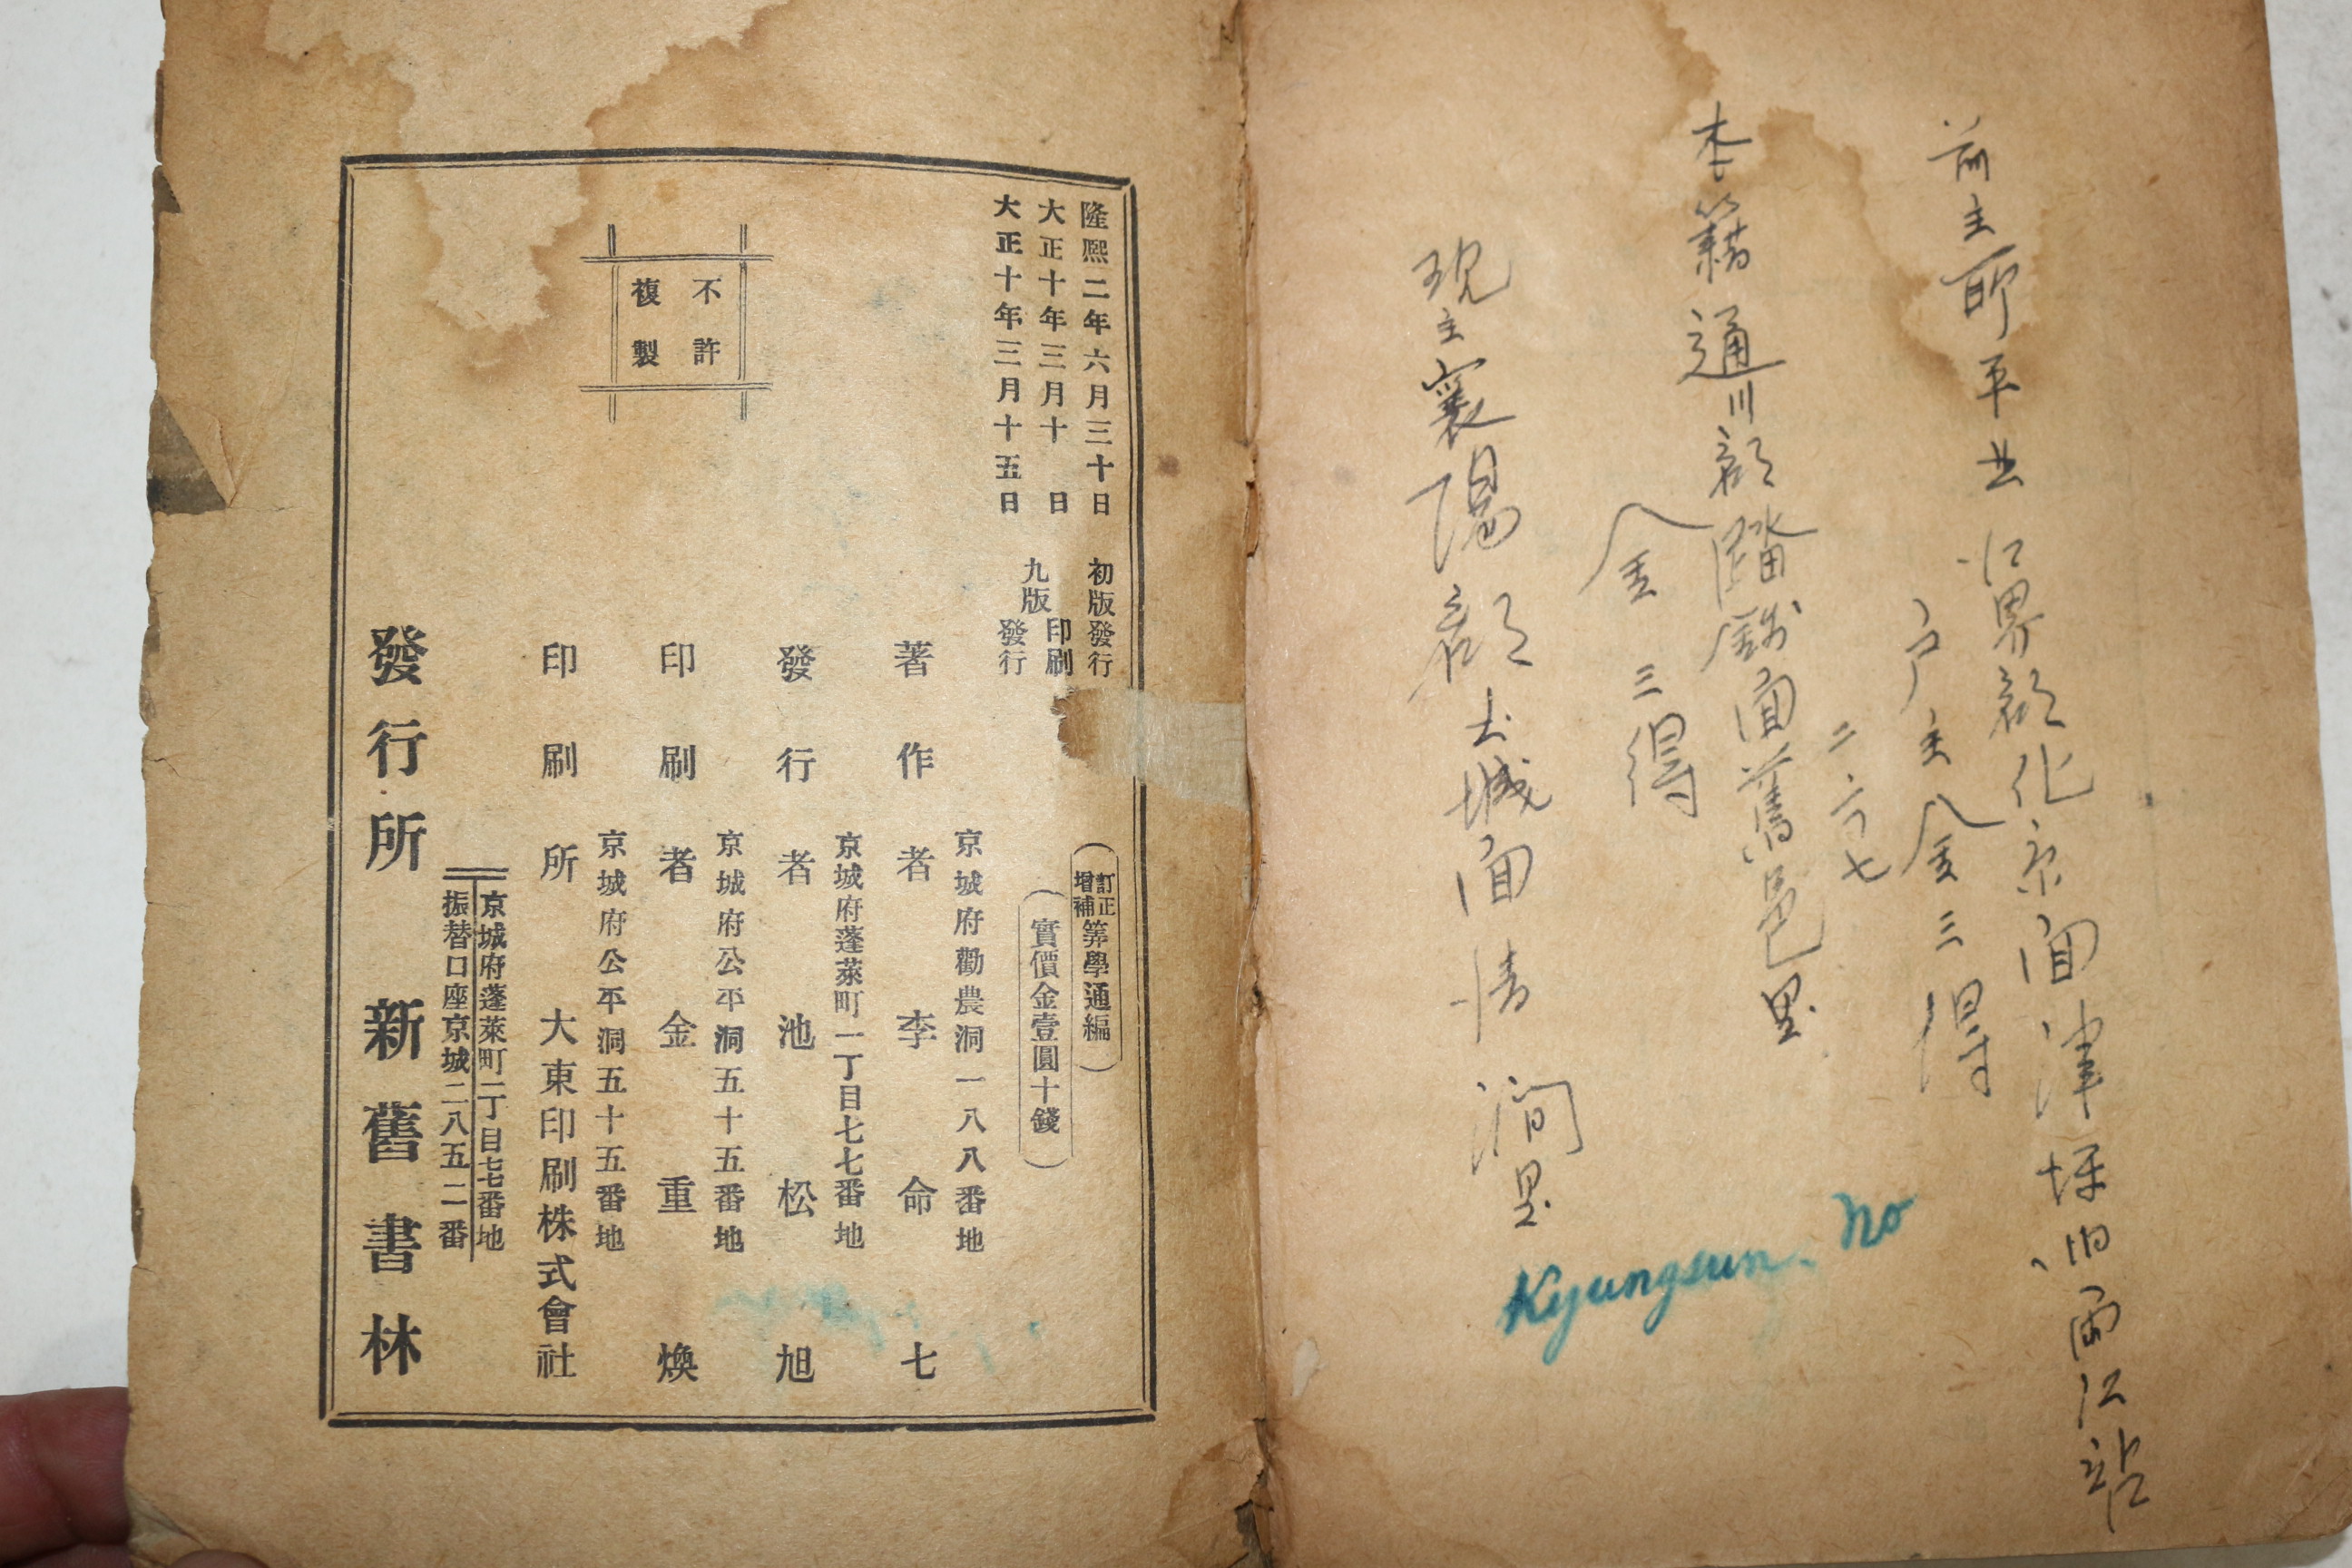 前主所平北江界郡化京面津坪洞西江站
戶主金三得
二六七
本籍通川郡踏錢面舊邑里
金三得
現主襄陽郡土城面情澗里
Kyungsun. No
隆熙二年六月三十日初版發行
大正十年三月十日九版印刷
大正十年三月十五日九版發行
訂正增補筭學通編
實價金壹圓十錢
京城府勸農洞一八八番地
著作者李命七
京城府蓬萊町一丁目七七番地
發行者池松旭
京城府公平洞五十五番地
印刷者金重煥
京城府公平洞五十五番地
印刷所大東印刷株式會社
不許
複製
京城府蓬萊町一丁目七七番地
振替口座京城二八五二番
發行所新舊書林